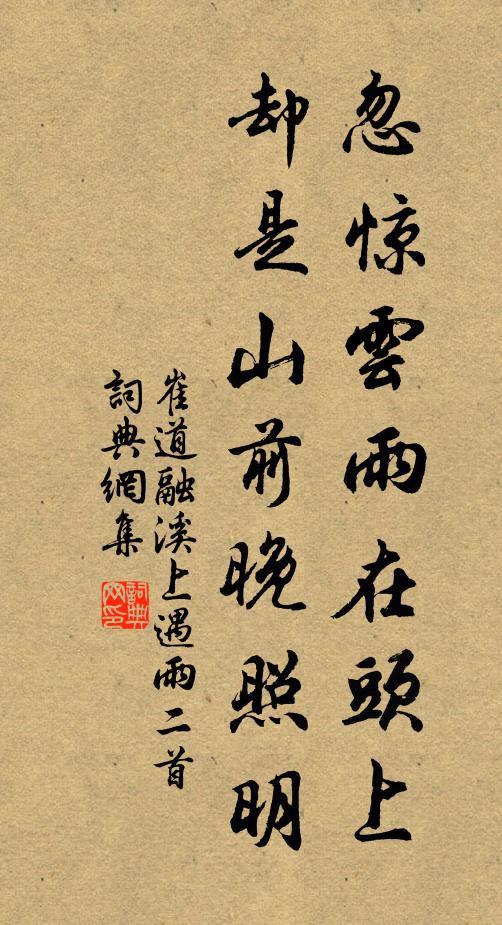 忽惊雲雨在頭上
却是山前晚照明
崔道融溪上遇雨二首
詞典網集
詞典網印